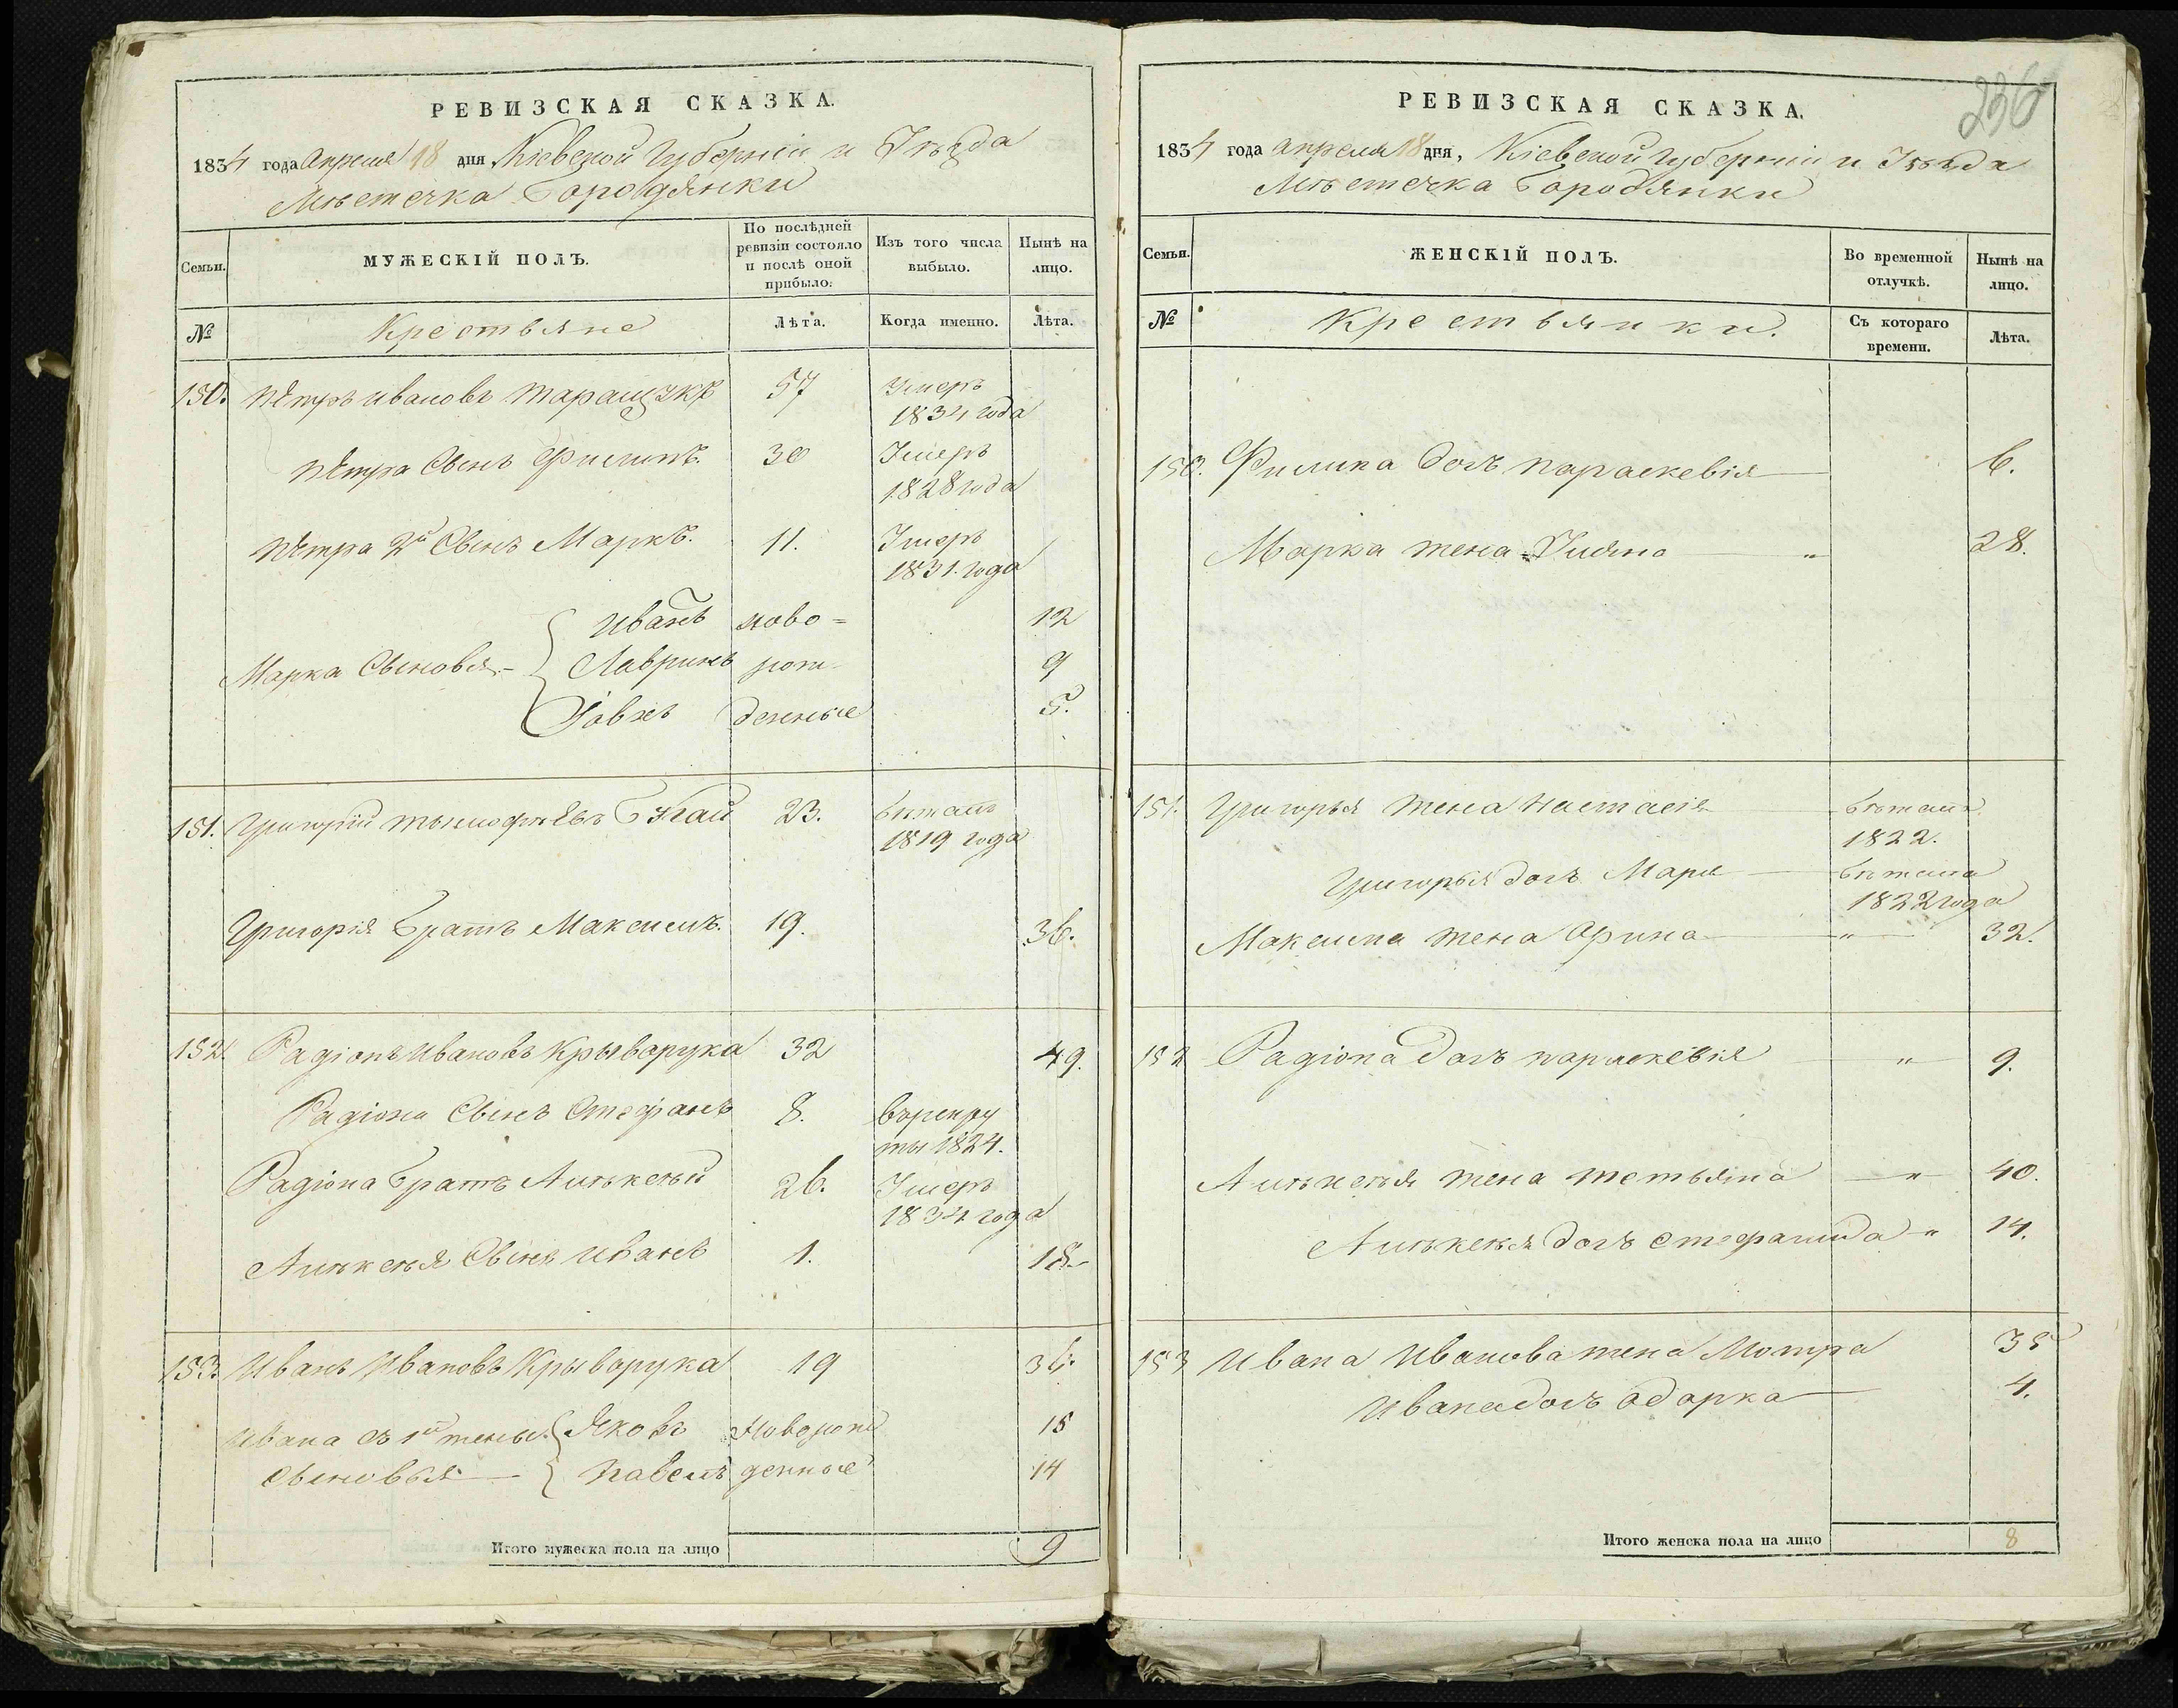 РЕВИЗСКАЯ СКАЗКА.
1834 года апреля 18 дня, Кіевской Губерніи и Уѣзда
Мѣстечка Бородянки
Семьи.
МУЖЕСКІЙ ПОЛЪ.
По послѣдней ревизіи состояло и послѣ оной прибыло.
Изъ того числа выбыло.
Нынѣ на лицо.
№
Крестьяне
Лѣта.
Когда именно.
Лѣта.
150. Пётръ Ивановъ 57 Умеръ
1834 года
Пётра Сынъ Филипъ. 30 Умеръ
1828 года
Пётра 2й Сынъ Маркъ. 11. Умеръ
1831. года
Иванъ ново= 12
Марка Сыновья - Лавринъ рож- 9
денные 5.
151. Григорій 23. бѣжалъ
1819 года
Григорія братъ Максимъ. 19. 36.
152. Радіонъ Ивановъ Крыворука 32 49.
Радіона Сынъ Стефанъ 8. въ рекру
ты 1824.
Радіона братъ 26. Умеръ
1834 года
Сынъ Иванъ 1. 18.
153. Иванъ Ивановъ Крыворука 19 34.
Ивана съ 1й жены Яковъ Новорож 15
Сыновья Павелъ денные 14
Итого мужеска пола на лицо 9
236
РЕВИЗСКАЯ СКАЗКА.
1834 года апреля 18 дня, Кіевской Губерніи и Уѣзда
Мѣстечка Бородянки
Семьи.
ЖЕНСКІЙ ПОЛЪ.
Во временной отлучкѣ.
Нынѣ на лицо.
№
Крестьянки.
Съ котораго времени.
Лѣта.
150. Филипа дочъ Параскевія 6.
Марка жена 28.
151. Григорья жена Настасія бѣжала
1822.
Григорья дочъ Мария бѣжала
1822 года
Максима жена Орина " 32.
152 Радіона дочъ Параскевія " 9.
жена Тетьяна " 40.
дочъ Стефанида " 14.
153 Ивана Иванова жена Мотря 35
Ивана дочъ Одарка 4.
Итого женска пола на лицо 8